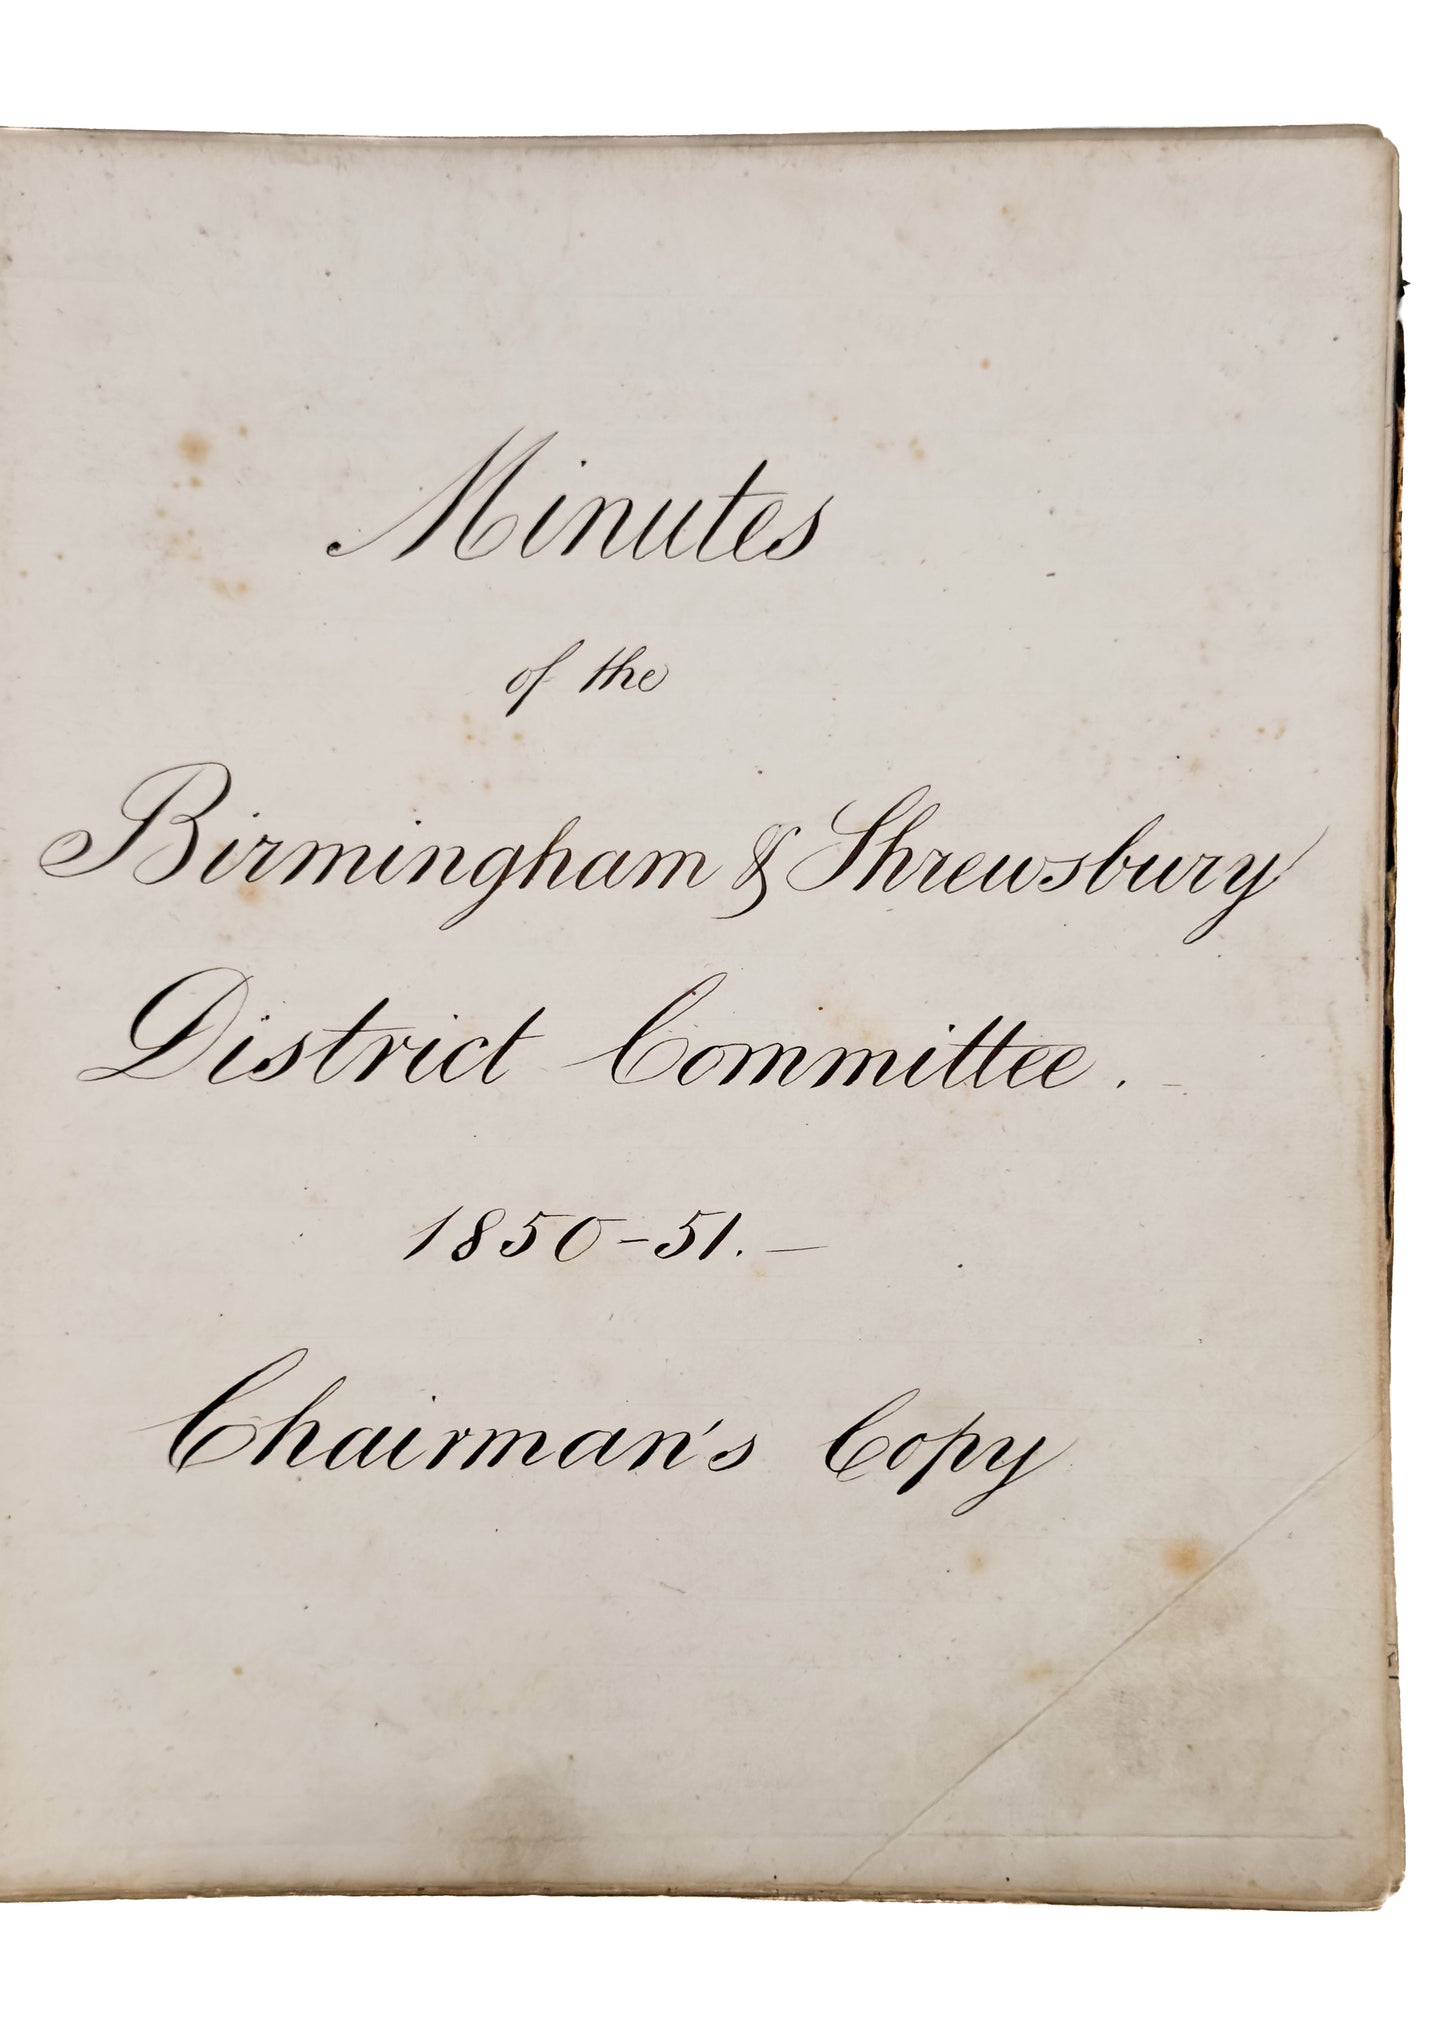 Minutes
of the
Birmingham & Shrewsbury
District Committee. -
1850-51. —
Chairman's Copy